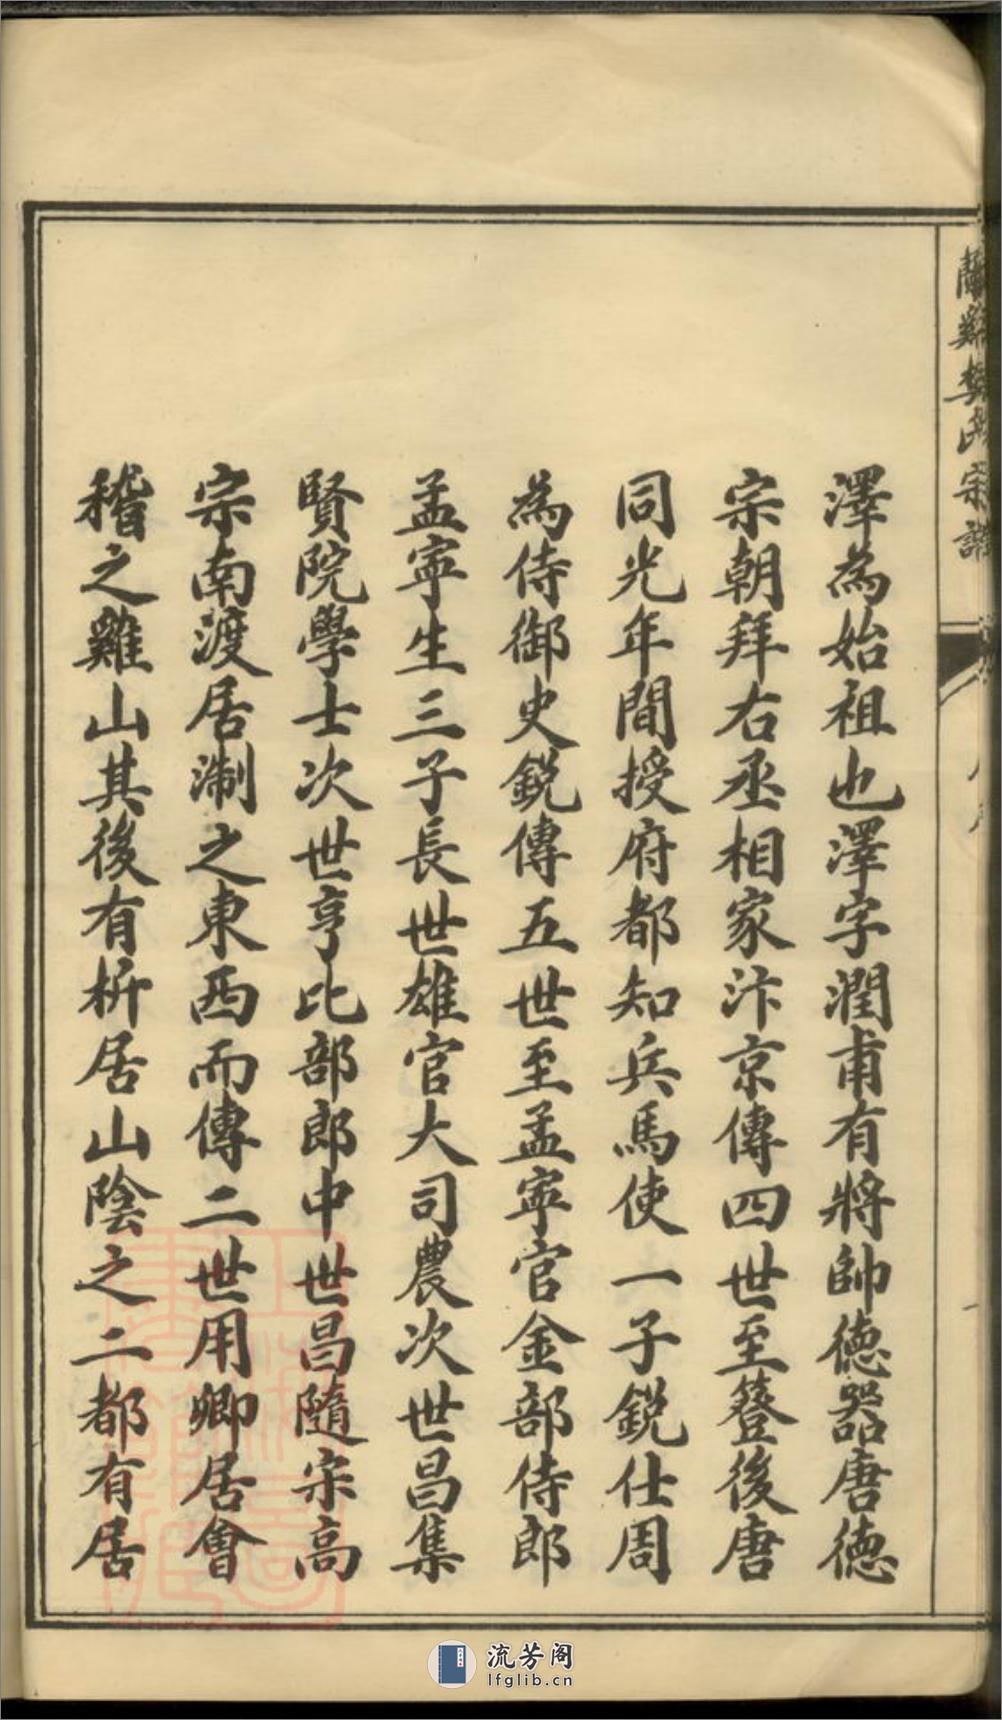 澤為始祖也澤字潤甫有將帥德器唐德
宗朝拜右丞相家汴京傳四世至簦後唐
同光年間授府都知兵馬使一子銳仕周
為侍御史銳傳五世至孟寧官金部侍郎
孟寧生三子長世雄官大司農次世昌集
賢院學士次世亨比部郎中世昌隨宋高
宗南渡居淛之東西而傳二世用卿居會
稽之雞山其後有析居山陰之二都有居
流芳阁
lfglib.cn